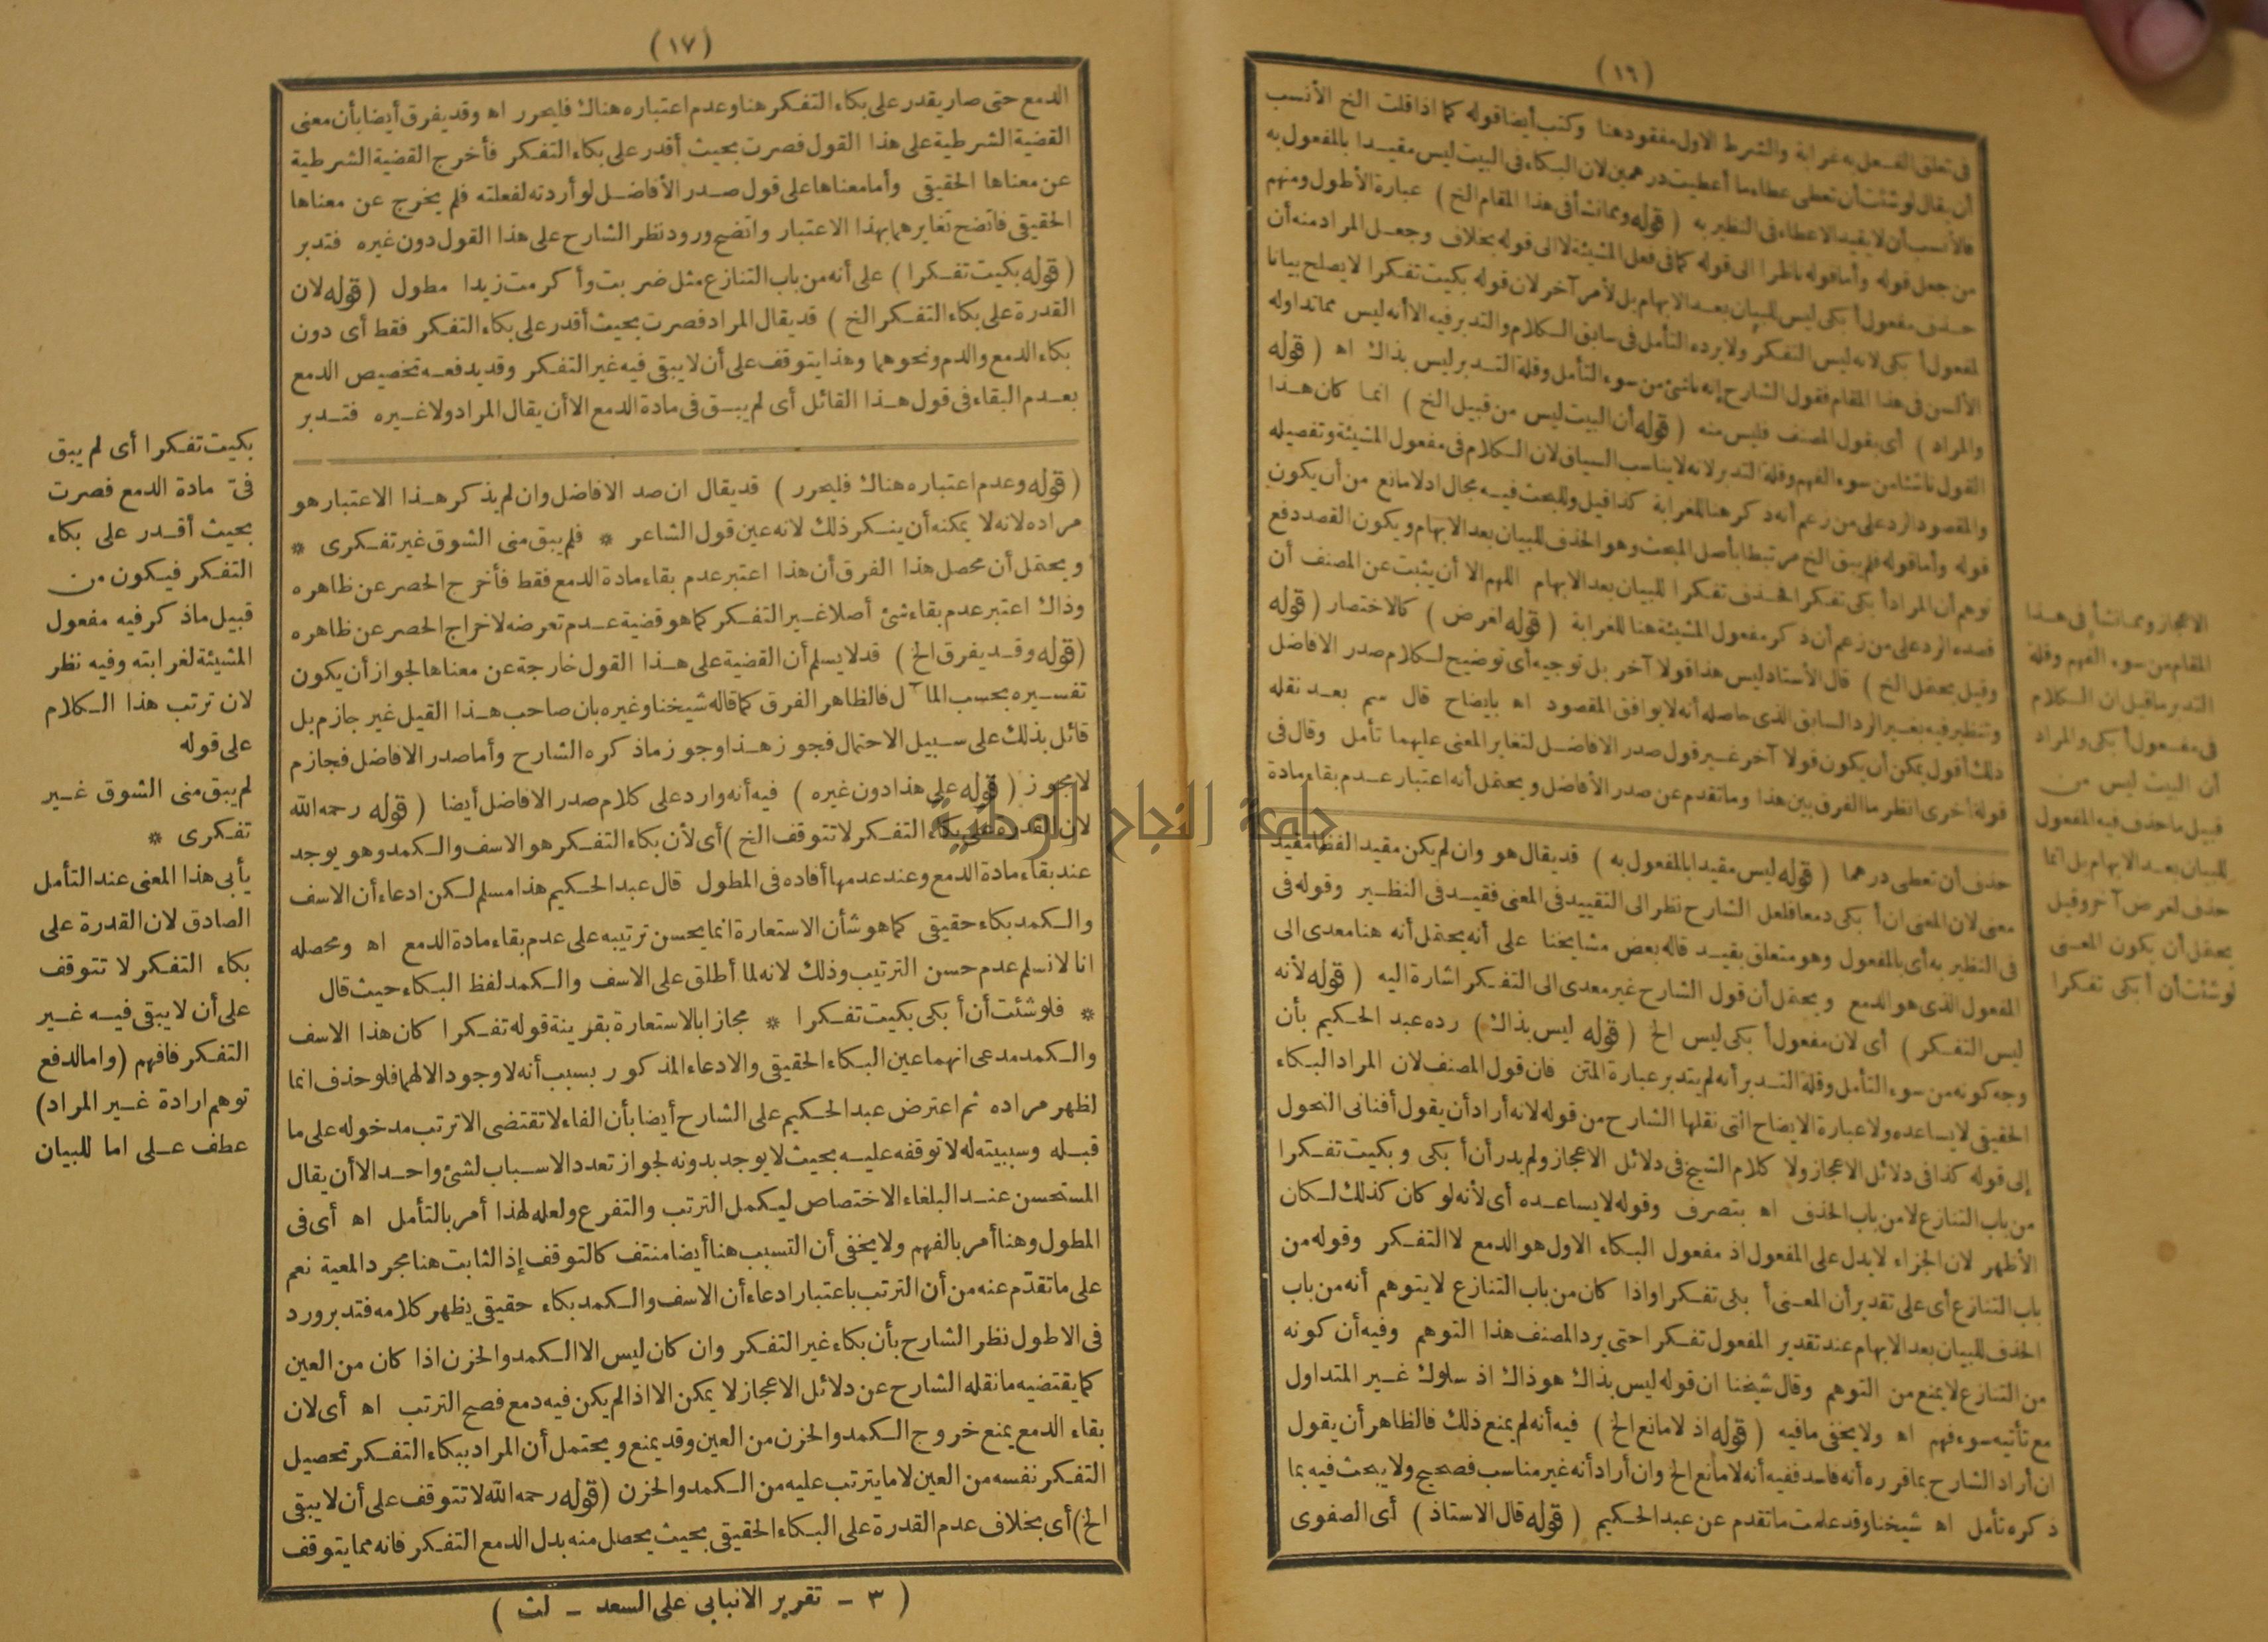 (١٦)
فى تعلق الفعل به غرابة والشرط الاول مفقود هنا وكتب أيضا قوله كما اذا قلت الخ الأنسب
أن يقال لو شئت أن تعطى عطاء ما أعطيت درهمين لان البكاء فى البيت ليس مقيدا بالمفعول به
فالأنسب أن لا يقيد الاعطاء فى النظير به (قوله ومما نشأ فى هذا المقام الخ) عبارة الأطول ومنهم
من جعل قوله وأما قوله ناظرا الى قوله كما فى فعل المشيئة لا الى قوله بخلاف وجعل المراد منه أن
حذف مفعول أبكى ليس للبيان بعد الابهام بل لأمر آخر لان قوله بكيت تفكرا لا يصلح بيانا
لمفعول أبكى لانه ليس التفكر ولا يرده التأمل فى سابق الكلام والتدبر فيه الا أنه ليس مما تداوله
الألسن فى هذا المقام فقول الشارح إنه ناشئ من سوء التأمل وقلة التدبر ليس بذاك اه (قوله
والمراد) أى بقول المصنف فليس منه (قوله أن البيت ليس من قبيل الخ) انما كان هذا
القول ناشئا من سوء الفهم وقلة التدبر لانه لا يناسب السياق لان الكلام فى مفعول المشيئة وتفصيله
والمقصود الرد على من زعم أنه ذكر هنا للغرابة كذا قيل وللبحث فيه مجال اذ لا مانع من أن يكون
قوله وأما قوله فلم يبق الخ مرتبطا بأصل المبحث وهو الحذف للبيان بعد الابهام ويكون القصد دفع
توهم أن المراد أبكى تفكرا فحذف تفكرا للبيان بعد الابهام اللهم الا أن يثبت عن المصنف أن
قصده الرد على من زعم أن ذكر مفعول المشيئة هنا للغرابة (قوله لغرض) كالاختصار (قوله
وقيل يحتمل الخ) قال الأستاذ ليس هذا قولا آخر بل توجيه أى توضيح لكلام صدر الافاضل
وتنظير فيه بغير الرد السابق الذى حاصله أنه لا يوافق المقصود اه بايضاح قال سم بعد نقله
ذلك أقول يمكن أن يكون قولا آخر غير قول صدر الافاضل لتغاير المعنى عليهما تأمل وقال فى
قوله أخرى انظر ما الفرق بين هذا وما تقدم عن صدر الأفاضل ويحتمل أنه اعتبار عدم بقاء مادة
حذف أن تعطى درهما (قوله ليس مقيدا بالمفعول به) قد يقال هو وان لم يكن مقيدا لفظا مقيد
معنى لان المعنى ان أبكى دمعا فلعل الشارح نظر الى التقييد فى المعنى فقيد فى النظير وقوله فى
فى النظير به أى بالمفعول وهو متعلق بقيد قاله بعض مشايخنا على أنه يحتمل أنه هنا معدى الى
المفعول الذى هو الدمع ويحتمل أن قول الشارح غير معدى الى التفكر اشارة اليه (قوله لأنه
ليس التفكر) أى لان مفعول أبكى ليس الخ (قوله ليس بذاك) رده عبد الحكيم بأن
وجه كونه من سوء التأمل وقلة التدبر أنه لم يتدبر عبارة المتن فان قول المصنف لان المراد البكاء
الحقيقى لا يساعده ولا عبارة الايضاح التى نقلها الشارح من قوله لانه أراد أن يقول أفنانى النحول
إلى قوله كذا فى دلائل الاعجاز ولا كلام الشيخ فى دلائل الاعجاز ولم يدر أن أبكى وبكيت تفكرا
من باب التنازع لا من باب الحذف اه بتصرف وقوله لا يساعده أى لأنه لو كان كذلك لكان
الأظهر لان الجزاء لا يدل على المفعول اذ مفعول البكاء الاول هو الدمع لا التفكر وقوله من
باب التنازع أى على تقدير أن المعنى أبكى تفكرا واذا كان من باب التنازع لا يتوهم أنه من باب
الحذف للبيان بعد الابهام عند تقدير المفعول تفكرا حتى يرد المصنف هذا التوهم وفيه أن كونه
من التنازع لا يمنع من التوهم وقال شيخنا ان قوله ليس بذاك هو ذاك اذ سلوك غير المتداول
مع تأتيه سوء فهم اه ولا يخفى ما فيه (قوله اذ لا مانع الخ) فيه أنه لم يمنع ذلك فالظاهر أن يقول
ان أراد الشارح بما قرره أنه فاسد ففيه أنه لا مانع الخ وان أراد أنه غير مناسب فصحيح ولا يبحث فيه بما
ذكره تأمل اه شيخنا وقد علمت ما تقدم عن عبد الحكيم (قوله قال الاستاذ) أى الصفوى
الاعجاز ومما نشأ فى هذا
المقام من سوء الفهم وقلة
التدبر ما قيل ان الكلام
فى مفعول أبكى والمراد
أن البيت ليس من
قبيل ما حذف فيه المفعول
للبيان بعد الابهام بل انما
حذف لغرض آخر وقيل
يحتمل أن يكون المعنى
لو شئت أن أبكى تفكرا
(١٧)
الدمع حتى صار يقدر على بكاء التفكر هنا وعدم اعتباره هناك فليحرر اه وقد يفرق أيضا بأن معنى
القضية الشرطية على هذا القول فصرت بحيث أقدر على بكاء التفكر فأخرج القضية الشرطية
عن معناها الحقيقى وأما معناها على قول صدر الأفاضل لو أردته لفعلته فلم يخرج عن معناها
الحقيقى فاتضح تغايرهما بهذا الاعتبار واتضح ورود نظر الشارح على هذا القول دون غيره فتدبر
(قوله بكيت تفكرا) على أنه من باب التنازع مثل ضربت وأكرمت زيدا مطول (قوله لان
القدرة على بكاء التفكر الخ) قد يقال المراد فصرت بحيث أقدر على بكاء التفكر فقط أى دون
بكاء الدمع والدم ونحوهما وهذا يتوقف على أن لا يبقى فيه غير التفكر وقد يدفعه تخصيص الدمع
بعدم البقاء فى قول هذا القائل أى لم يبق فى مادة الدمع الا أن يقال المراد ولا غيره فتدبر
(قوله وعدم اعتباره هناك فليحرر) قد يقال ان صد الافاضل وان لم يذكر هذا الاعتبار هو
مراده لانه لا يمكنه أن ينكر ذلك لانه عين قول الشاعر * فلم يبق منى الشوق غير تفكرى *
ويحتمل أن محصل هذا الفرق أن هذا اعتبر عدم بقاء مادة الدمع فقط فأخرج الحصر عن ظاهره
وذاك اعتبر عدم بقاء شئ أصلا غير التفكر كما هو قضية عدم تعرضه لاخراج الحصر عن ظاهره
(قوله وقد يفرق الخ) قد لا يسلم أن القضية على هذا القول خارجة عن معناها لجواز أن يكون
تفسيره بحسب المآل فالظاهر الفرق كما قاله شيخنا وغيره بان صاحب هذا القيل غير جازم بل
قائل بذلك على سبيل الاحتمال فجوز هذا وجوز ما ذكره الشارح وأما صدر الافاضل فجازم
لا مجوز (قوله على هذا دون غيره) فيه أنه وارد على كلام صدر الافاضل أيضا (قوله رحمه الله
لان القدرة على بكاء التفكر لا تتوقف الخ) أى لأن بكاء التفكر هو الاسف والكمد وهو يوجد
عند بقاء مادة الدمع وعند عدمها أفاده فى المطول قال عبد الحكيم هذا مسلم لكن ادعاء أن الاسف
والكمد بكاء حقيقى كما هو شأن الاستعارة انما يحسن ترتيبه على عدم بقاء مادة الدمع اه ومحصله
انا لا نسلم عدم حسن الترتيب وذلك لانه لما أطلق على الاسف والكمد لفظ البكاء حيث قال
* فلو شئت أن أبكى بكيت تفكرا * مجازا بالاستعارة بقرينة قوله تفكرا كان هذا الاسف
والكمد مدعى انهما عين البكاء الحقيقى والادعاء المذكور بسبب أنه لا وجود الا لهما فلو حذف انما
لظهر مراده ثم اعترض عبد الحكيم على الشارح أيضا بأن الفاء لا تقتضى الا ترتب مدخوله على ما
قبله وسببيته له لا توقفه عليه بحيث لا يوجد بدونه لجواز تعدد الاسباب لشئ واحد الا أن يقال
المستحسن عند البلغاء الاختصاص ليكمل الترتب والتفرع ولعله لهذا أمر بالتأمل اه أى فى
المطول وهنا أمر بالفهم ولا يخفى أن التسبب هنا أيضا منتف كالتوقف إذ الثابت هنا مجرد المعية نعم
على ما تقدّم عنه من أن الترتب باعتبار ادعاء أن الاسف والكمد بكاء حقيقى يظهر كلامه فتدبر ورد
فى الاطول نظر الشارح بأن بكاء غير التفكر وان كان ليس الا الكمد والحزن اذا كان من العين
كما يقتضيه ما نقله الشارح عن دلائل الاعجاز لا يمكن الا اذا لم يكن فيه دمع فصح الترتب اه أى لان
بقاء الدمع يمنع خروج الكمد والحزن من العين وقد يمنع ويحتمل أن المراد ببكاء التفكر تحصيل
التفكر نفسه من العين لا ما يترتب عليه من الكمد والحزن (قوله رحمه الله لا تتوقف على أن لا يبقى
الخ) أى بخلاف عدم القدرة على البكاء الحقيقى بحيث يحصل منه بدل الدمع التفكر فانه مما يتوقف
بكيت تفكرا أى لم يبق
فىّ مادة الدمع فصرت
بحيث أقدر على بكاء
التفكر فيكون من
قبيل ما ذكر فيه مفعول
المشيئة لغرابته وفيه نظر
لان ترتب هذا الكلام
على قوله
لم يبق منى الشوق غير
تفكرى *
يأبى هذا المعنى عند التأمل
الصادق لان القدرة على
بكاء التفكر لا تتوقف
على أن لا يبقى فيه غير
التفكر فافهم (واما لدفع
توهم ارادة غير المراد)
عطف على اما للبيان
(٣ - تقرير الانبابى على السعد - لث)
جامعة النجاح الوطنية